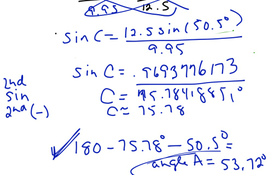 9.95 12.5
sin C = 12.5 sin(50.5°)
9.95
sin C = .9693776173
2nd
sin
2nd (-)
C = 75.78418851°
C ≈ 75.78
✓ 180 - 75.78° - 50.5° =
angle A = 53.72°